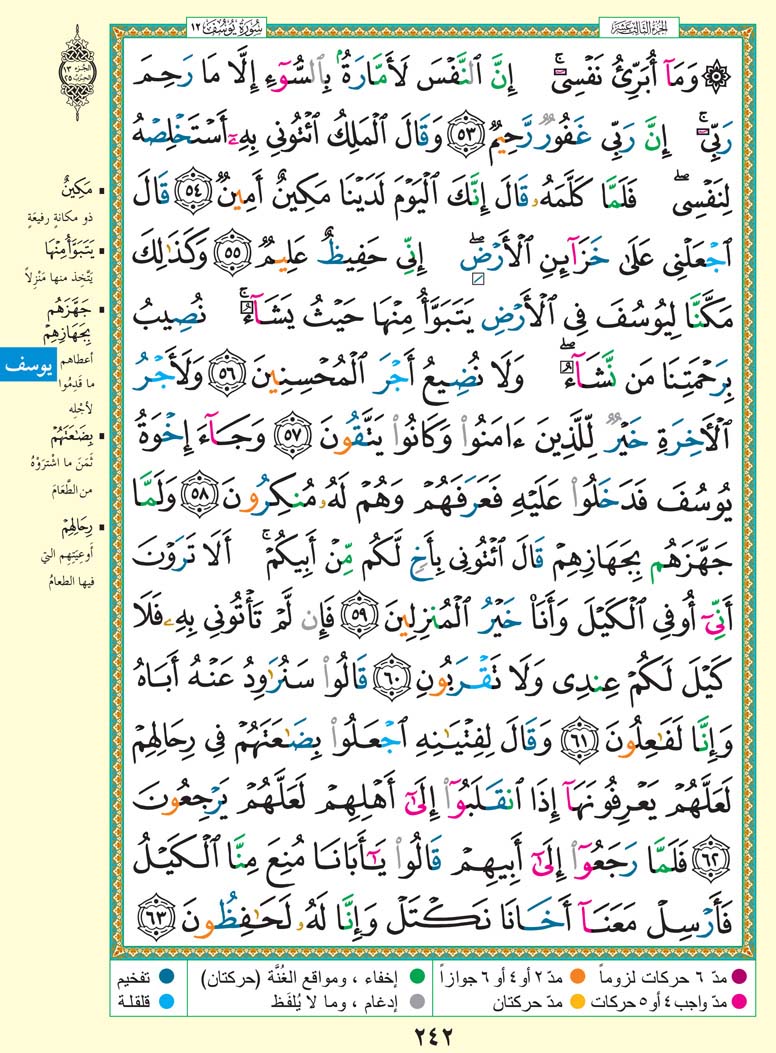 سُورَةُ يُوسُف ١٢
الجُزءُ الثَّالِثَ عَشَرَ
الجُزء
١٣
الحِزب
٢٥
۞ وَمَآ أُبَرِّئُ نَفْسِىٓ ۚ إِنَّ ٱلنَّفْسَ لَأَمَّارَةٌۢ بِٱلسُّوٓءِ إِلَّا مَا رَحِمَ
رَبِّىٓ ۚ إِنَّ رَبِّى غَفُورٌ رَّحِيمٌ ٥٣ وَقَالَ ٱلْمَلِكُ ٱئْتُونِى بِهِۦٓ أَسْتَخْلِصْهُ
لِنَفْسِى ۖ فَلَمَّا كَلَّمَهُۥ قَالَ إِنَّكَ ٱلْيَوْمَ لَدَيْنَا مَكِينٌ أَمِينٌ ٥٤ قَالَ
ٱجْعَلْنِى عَلَىٰ خَزَآئِنِ ٱلْأَرْضِ ۖ إِنِّى حَفِيظٌ عَلِيمٌ ٥٥ وَكَذَٰلِكَ
مَكَّنَّا لِيُوسُفَ فِى ٱلْأَرْضِ يَتَبَوَّأُ مِنْهَا حَيْثُ يَشَآءُ ۚ نُصِيبُ
بِرَحْمَتِنَا مَن نَّشَآءُ ۖ وَلَا نُضِيعُ أَجْرَ ٱلْمُحْسِنِينَ ٥٦ وَلَأَجْرُ
ٱلْأَخِرَةِ خَيْرٌ لِّلَّذِينَ ءَامَنُوا۟ وَكَانُوا۟ يَتَّقُونَ ٥٧ وَجَآءَ إِخْوَةُ
يُوسُفَ فَدَخَلُوا۟ عَلَيْهِ فَعَرَفَهُمْ وَهُمْ لَهُۥ مُنكِرُونَ ٥٨ وَلَمَّا
جَهَّزَهُم بِجَهَازِهِمْ قَالَ ٱئْتُونِى بِأَخٍ لَّكُم مِّنْ أَبِيكُمْ ۚ أَلَا تَرَوْنَ
أَنِّىٓ أُوفِى ٱلْكَيْلَ وَأَنَا۠ خَيْرُ ٱلْمُنزِلِينَ ٥٩ فَإِن لَّمْ تَأْتُونِى بِهِۦ فَلَا
كَيْلَ لَكُمْ عِندِى وَلَا تَقْرَبُونِ ٦٠ قَالُوا۟ سَنُرَٰوِدُ عَنْهُ أَبَاهُ
وَإِنَّا لَفَٰعِلُونَ ٦١ وَقَالَ لِفِتْيَٰنِهِ ٱجْعَلُوا۟ بِضَٰعَتَهُمْ فِى رِحَالِهِمْ
لَعَلَّهُمْ يَعْرِفُونَهَآ إِذَا ٱنقَلَبُوٓا۟ إِلَىٰٓ أَهْلِهِمْ لَعَلَّهُمْ يَرْجِعُونَ
٦٢ فَلَمَّا رَجَعُوٓا۟ إِلَىٰٓ أَبِيهِمْ قَالُوا۟ يَٰٓأَبَانَا مُنِعَ مِنَّا ٱلْكَيْلُ
فَأَرْسِلْ مَعَنَآ أَخَانَا نَكْتَلْ وَإِنَّا لَهُۥ لَحَٰفِظُونَ ٦٣
▪ مَكِينٌ
ذو مكانةٍ رفيعةٍ
▪ يَتَبَوَّأُ مِنْهَا
يَتَّخِذ منها مَنْزِلاً
▪ جَهَّزَهُم
بِجَهَازِهِمْ
أعطاهم
ما قَدِمُوا
لأجْلِه
▪ بِضَٰعَتَهُمْ
ثَمَنَ ما اشْتَرَوْهُ
من الطَّعَامَ
▪ رِحَالِهِمْ
أوعِيَتِهم التي
فيها الطعامُ
يوسف
● مدّ ٦ حركات لزوماً ● مدّ ٢ أو ٤ أو ٦ جوازاً ● إخفاء ، ومواقع الغُنَّة (حركتان) ● تفخيم
● مدّ واجب ٤ أو ٥ حركات ● مدّ حركتان ● إدغام ، وما لا يُلفَظ ● قلقلة
٢٤٢